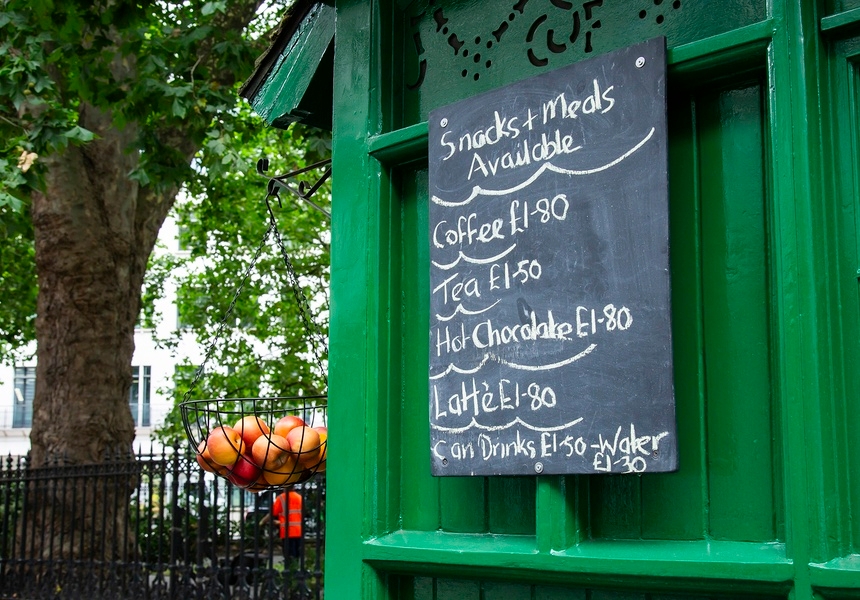 Snacks + Meals
Available
Coffee £1-80
Tea £1-50
Hot Chocolate £1-80
Lattè £1-80
Can Drinks £1-50 - Water
£1-30